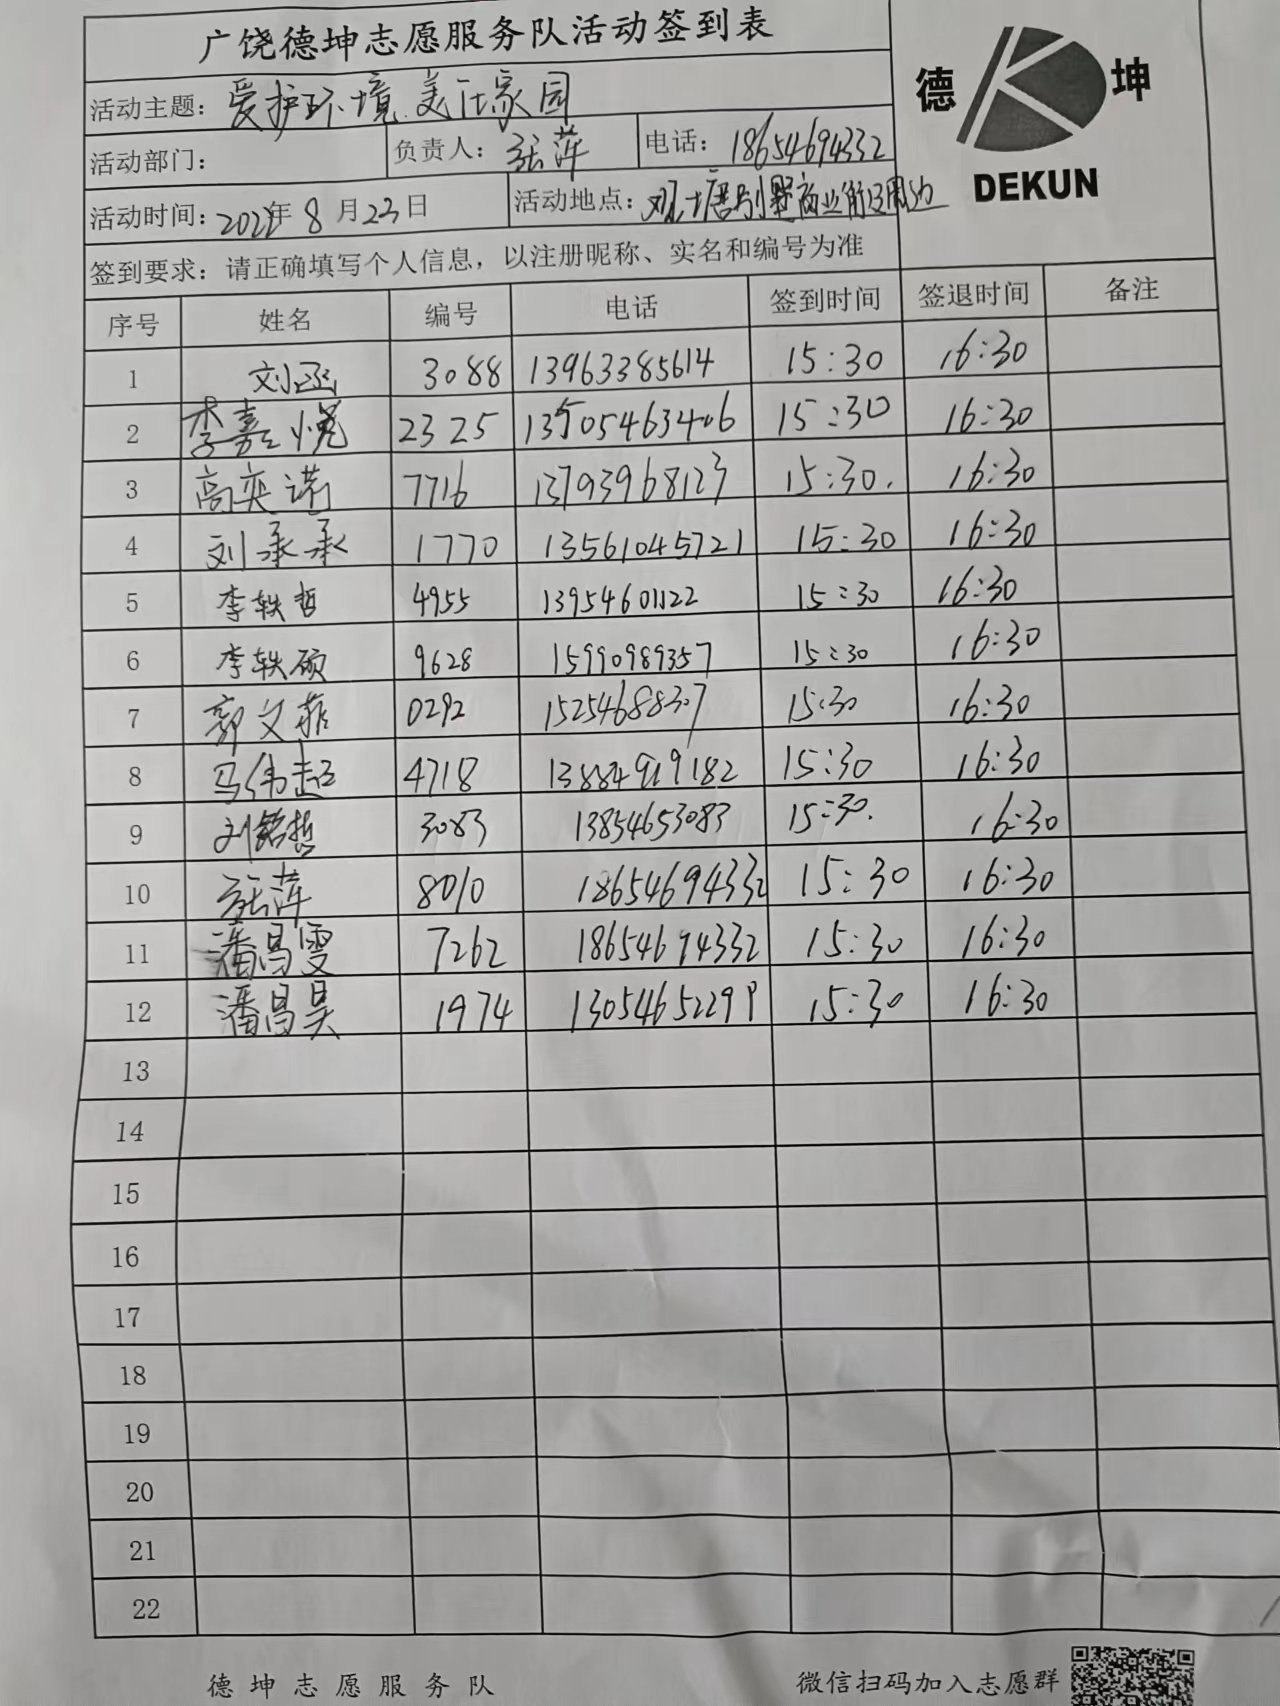 广饶德坤志愿服务队活动签到表
德 坤
DEKUN
活动主题：爱护环境.美化家园
活动部门： 负责人：张萍 电话：18654694332
活动时间：2022年8月23日 活动地点：观塘别墅商业街及周边
签到要求：请正确填写个人信息，以注册昵称、实名和编号为准
序号 姓名 编号 电话 签到时间 签退时间 备注
1 刘函 3088 13963385614 15:30 16:30
2 李嘉悦 2325 13505463406 15:30 16:30
3 高奕诺 7716 13793968123 15:30. 16:30
4 刘承承 1770 13561045721 15:30 16:30
5 李轶哲 4955 13954601122 15:30 16:30
6 李轶硕 9628 15990989357 15:30 16:30
7 郭文菲 0292 15254688307 15:30 16:30
8 马伟超 4718 13884919182 15:30 16:30
9 刘铭哲 3083 13854653083 15:30. 16:30
10 张萍 8010 18654694332 15:30 16:30
11 潘昌雯 7262 18654694332 15:30 16:30
12 潘昌昊 1974 13054652299 15:30 16:30
13
14
15
16
17
18
19
20
21
22
德坤志愿服务队 微信扫码加入志愿群